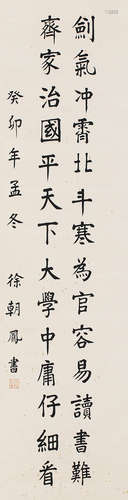 劍氣冲霄北斗寒為官容易讀書難
齊家治國平天下大學中庸仔細看
癸卯年孟冬
徐朝鳳書